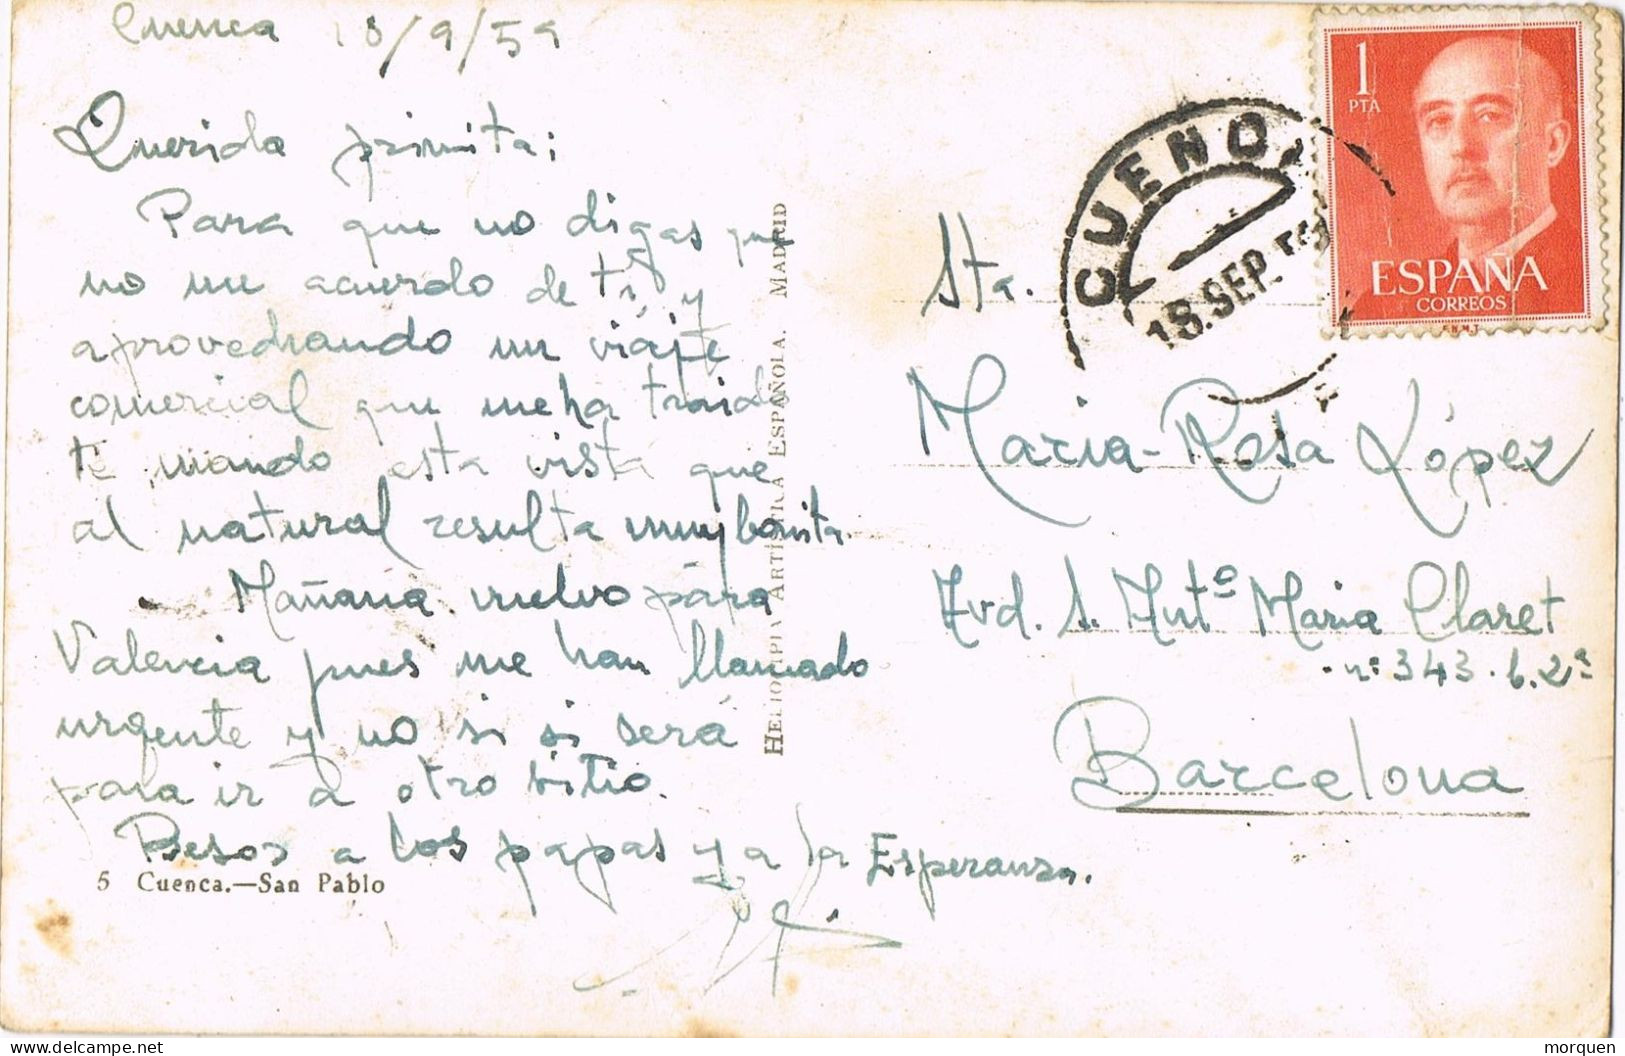 Cuenca 18/9/59
Querida primita;
Para que no digas que
no me acuerdo de ti y
aprovechando un viaje
comercial que me ha traido
te mando esta vista que
al natural resulta muy bonita.
Mañana vuelvo para
Valencia pues me han llamado
urgente y no si si será
para ir a otro sitio.
Besos a los papas y a la Esperanza.
5 Cuenca.—San Pablo
HELIOTIPIA ARTÍSTICA ESPAÑOLA. MADRID
CUENCA
18.SEP.59
1
PTA
ESPAÑA
CORREOS
F.N.M.T.
Sta.
Maria-Rosa López
Avd. S. Antº Maria Claret
nº 343. 6. 2ª
Barcelona
delcampe.net
morquen